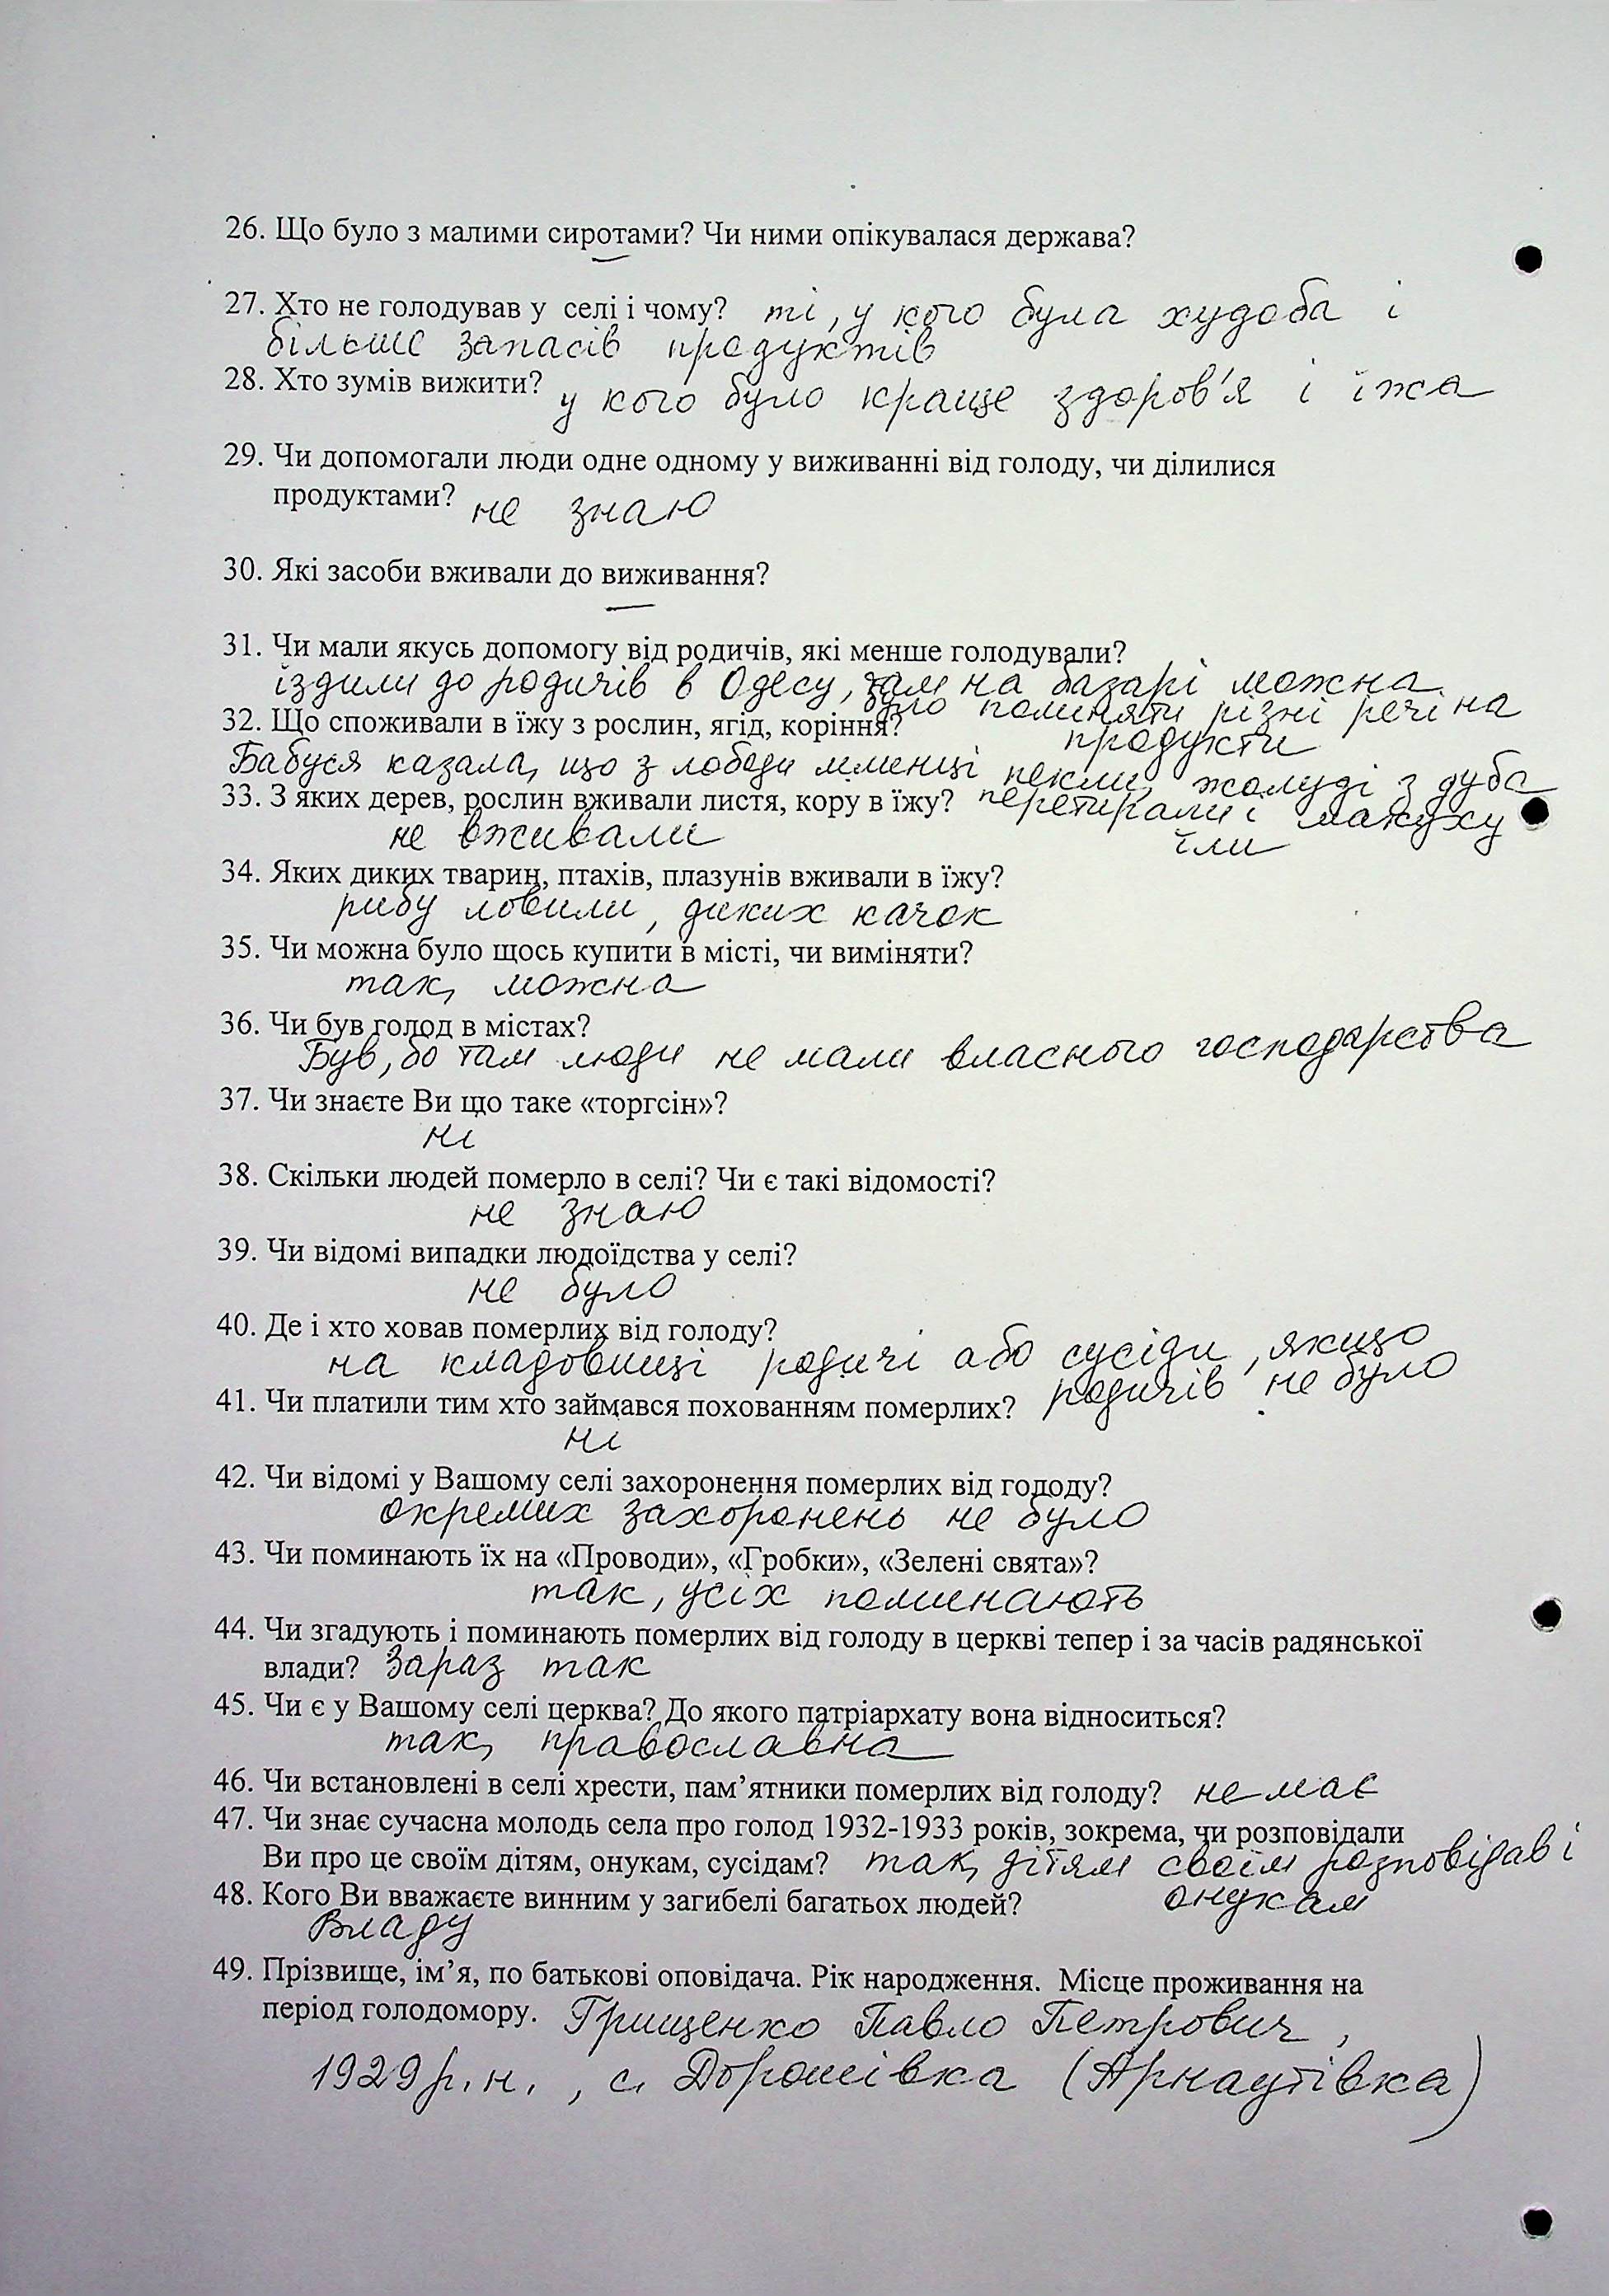 26. Що було з малими сиротами? Чи ними опікувалася держава?
—
27. Хто не голодував у селі і чому? ті, у кого була худоба і
більше запасів продуктів
28. Хто зумів вижити? у кого було краще здоров'я і їжа
29. Чи допомогали люди одне одному у виживанні від голоду, чи ділилися
продуктами? не знаю
30. Які засоби вживали до виживання?
—
31. Чи мали якусь допомогу від родичів, які менше голодували?
їздили до родичів в Одесу, там на базарі можна
було поміняти різні речі на
продукти
32. Що споживали в їжу з рослин, ягід, коріння?
Бабуся казала, що з лободи млинці пекли, жолуді з дуба
перетирали і макуху
їли
33. З яких дерев, рослин вживали листя, кору в їжу?
не вживали
34. Яких диких тварин, птахів, плазунів вживали в їжу?
рибу ловили, диких качок
35. Чи можна було щось купити в місті, чи виміняти?
так, можна
36. Чи був голод в містах?
Був, бо там люди не мали власного господарства
37. Чи знаєте Ви що таке «торгсін»?
ні
38. Скільки людей померло в селі? Чи є такі відомості?
не знаю
39. Чи відомі випадки людоїдства у селі?
не було
40. Де і хто ховав померлих від голоду?
на кладовищі родичі або сусіди, якщо
родичів не було
41. Чи платили тим хто займався похованням померлих?
ні
42. Чи відомі у Вашому селі захоронення померлих від голоду?
окремих захоронень не було
43. Чи поминають їх на «Проводи», «Гробки», «Зелені свята»?
так, усіх поминають
44. Чи згадують і поминають померлих від голоду в церкві тепер і за часів радянської
влади? Зараз так
45. Чи є у Вашому селі церква? До якого патріархату вона відноситься?
так, православна
46. Чи встановлені в селі хрести, пам’ятники померлих від голоду? немає
47. Чи знає сучасна молодь села про голод 1932-1933 років, зокрема, чи розповідали
Ви про це своїм дітям, онукам, сусідам? так, дітям своїм розповідав і
онукам
48. Кого Ви вважаєте винним у загибелі багатьох людей?
Владу
49. Прізвище, ім’я, по батькові оповідача. Рік народження. Місце проживання на
період голодомору. Грищенко Павло Петрович,
1929 р.н., с. Дорошівка (Арнаутівка)